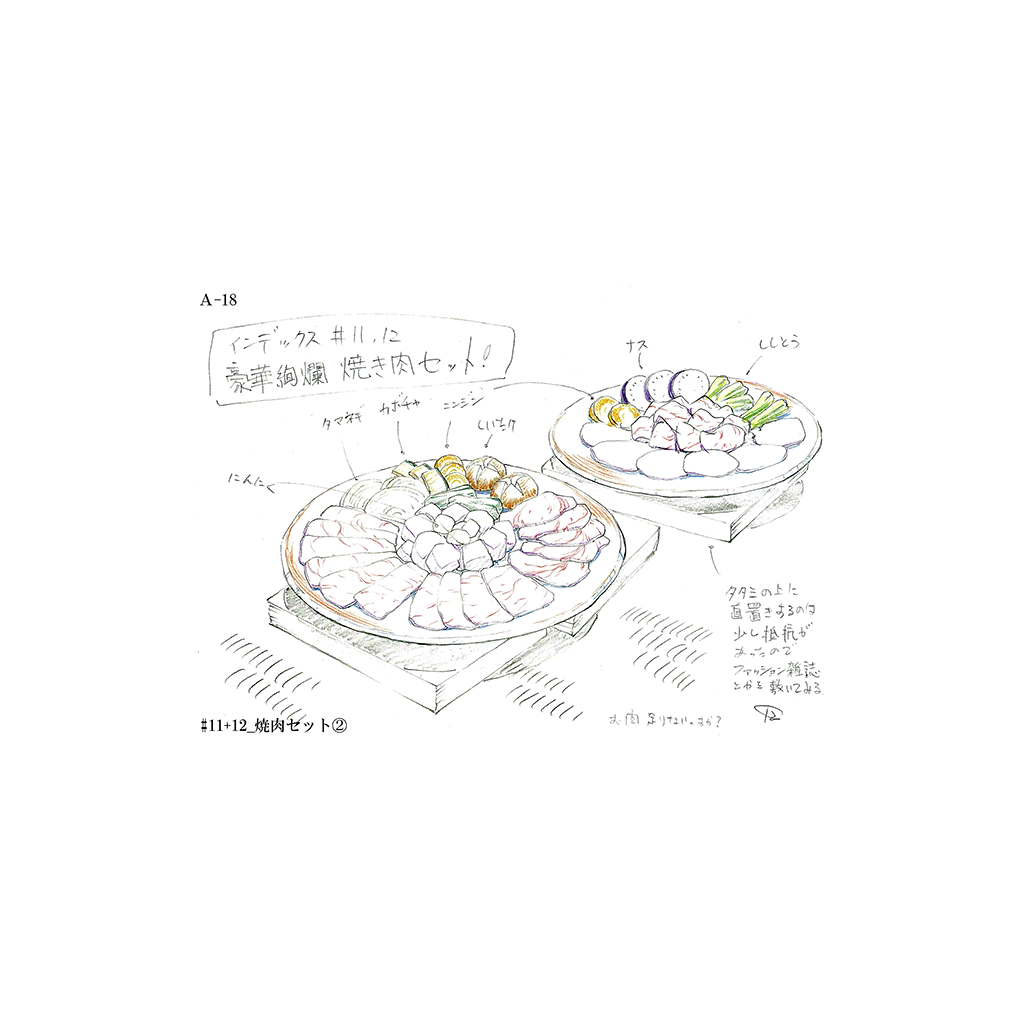 A-18
インデックス #11,12
豪華絢爛 焼き肉セット!
ナス
ししとう
タマネギ
カボチャ
ニンジン
しいたけ
にんにく
タタミの上に
直置きするのは
少し抵抗が
あったので
ファッション雑誌
とかを敷いてみる
お肉 足りないっすか?
#11+12_焼肉セット②